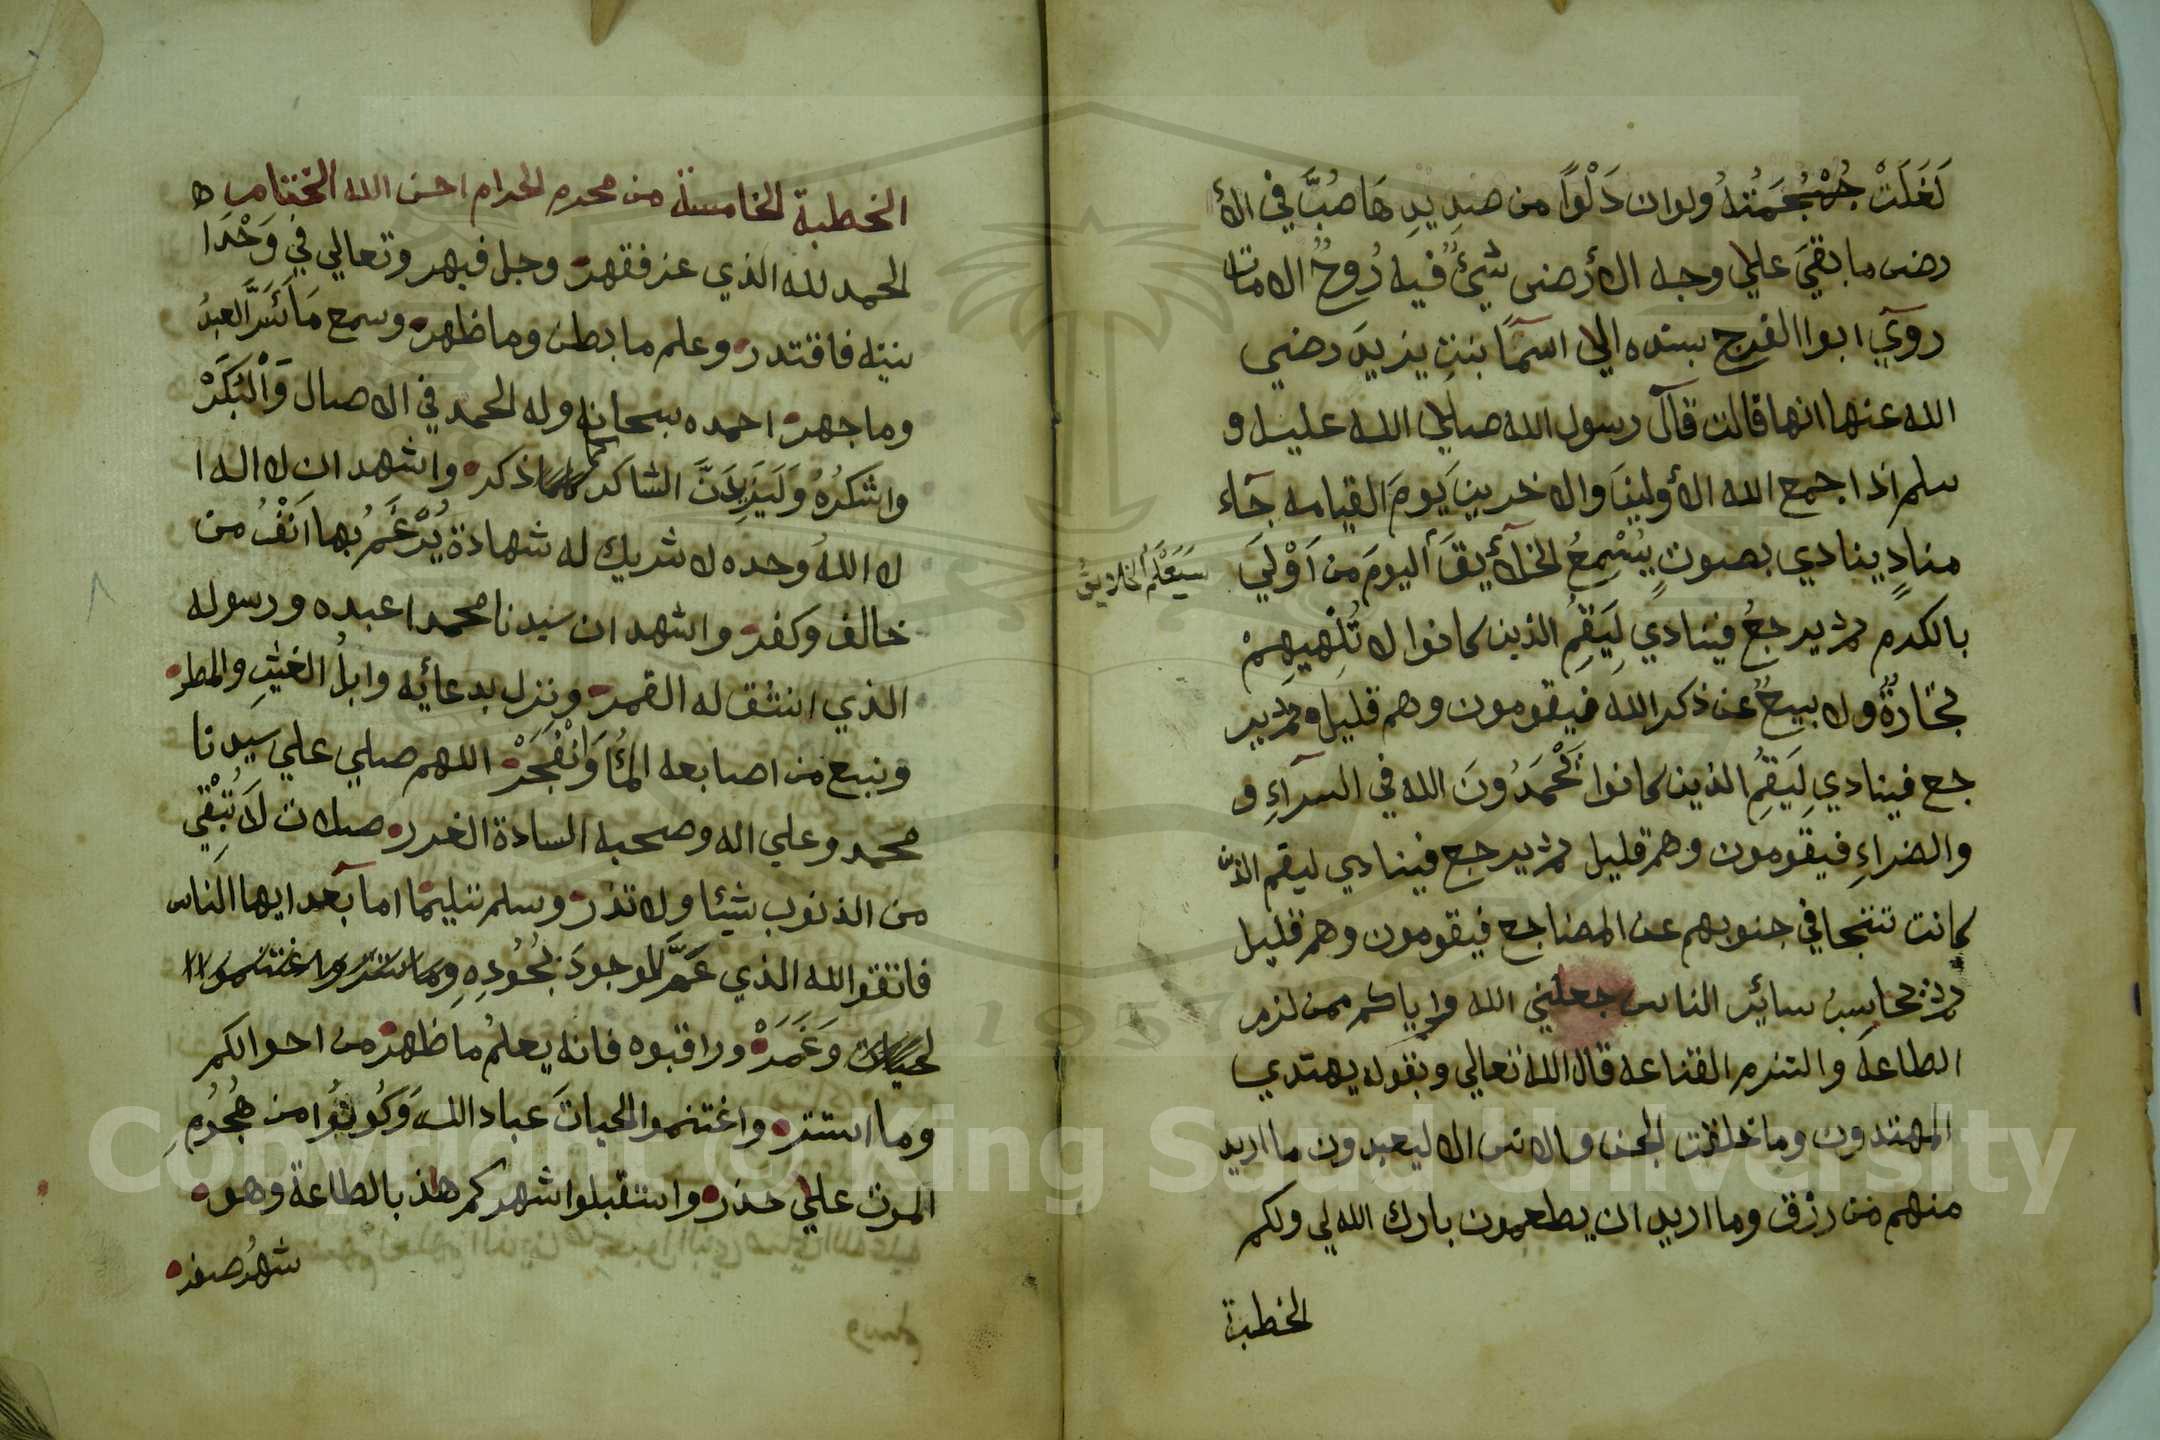 لَغَلَتْ جُمْجُمَتُهُ ولو ان دَلْوًا من صَدِيْدِ هَا صُبَّ في الأ
رض ما بقيَ علي وجه الأرض شيئٌ فيه رُوحٌ الا مات
رويَ ابوا الفرج بسنده الي اسمآ بنتِ يزيدَ رضي
الله عنها انها قالت قال رسول الله صلي الله عليه و
سلم اذا جمع الله الأولينَ والاخرينَ يَومَ القيامه جآء
منادٍ ينادي بصوتٍ يُسْمِعُ الخلآئِقَ اليومَ من اَوْليَ
سَيَعْلَمُ الخلايق
بالكرم ثم يرجعُ فينادي لِيَقُمِ الذين كانوا لا تُلْهِيهِمْ
تجَارةٌ ولا بيعٌ عن ذكر الله فيقومون وهم قليل ثم ير
جع فينادي لِيَقُمِ الذين كانوا يَحْمَدُونَ الله في السرآءِ و
والضراءِ فيقومون وهم قليل ثم يرجع فينادي ليقم الذين
كانت تتجافي جنوبهم عن المضاجع فيقومون وهم قليل
ثم يحاسب سائر الناس جعلني الله واياكم ممن لزم
الطاعة والتزم القناعة قال الله تعالي وبقوله يهتدي
المهتدون وما خلقت الجن والانس الا ليعبدون ما اريد
منهم من رزق وما اريد ان يطعمون بارك الله لي ولكم
الخطبة
الخطبة الخامسة من محرم الحرام احسن الله الختام
الحمد لله الذي عز فقهر وجل فبهر وتعالي في وَحْدَا
نيته فاقتدر وعلم ما بطن وما ظهر وسمع مَا اَسَرَّ العبدُ
وما جهر احمده سبحانه وله الحمد في الاصال وَالْبُكَرْ
واشكرُهُ وَلَيَزِيدَنَّ الشاكر كلما ذكر واشهد ان لا اله ا
لا اللهُ وحده لا شريك له شهادة يُرْغَمُ بها اَنْفُ من
خالف وكفر واشهد ان سيدنا محمدا عبده ورسوله
الذي انشق له القمر ونزل بدعائِه وابلُ الغيثِ والمطر
ونبع من اصابعه المآءُ وَانْفَجَرْ اللهم صلي علي سيدنا
محمد وعلي اله وصحبه السادة الغرر صلات لاَ تُبْقِي
من الذنوب شيئا ولا تذر وسلم تسليمًا اما بعد ايها الناس
فاتقوا الله الذي عَمَّ الموجودَ بجُودِهِ وما استتر واغتنموا ا
لحيات وَغَمَرْ وراقبوه فانه يعلمُ ما ظهر من احوالكم
وما استتر واغتنموا الحياتَ عباد الله وَكُونُوا من هُجُومِ
الموت علي حذر واستقبلوا شهركم هذ بالطاعة وهو
شهرُ صفر